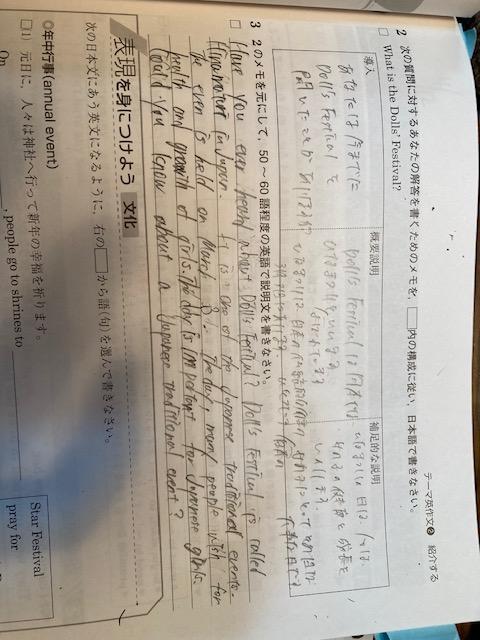 テーマ英作文❷ 紹介する
2 次の質問に対するあなたの解答を書くためのメモを，□内の構成に従い，日本語で書きなさい。
□ What is the Dolls' Festival?
導入
あなたは今までに
Dolls Festival を
聞いたことがありますか
概要説明
Dolls Festival は日本では
ひなまつりと
よばれています
ひなまつりは日本の
3月
補足的な説明
ひなまつりの日は 人々は
女の子の健康と成長を
いのります。
女の子にとって
3 2のメモを元にして，50～60語程度の英語で説明文を書きなさい。
□ Have you ever heard about Dolls Festival? Doll's Festival is called
Hinamatsuri in Japan. It is one of the Japanese traditional events.
The even is held on March 3. The day, many people wish for
health and growth of girls. The day is important for Japanese girls.
Could you know about a Japanese traditional event?
表現を身につけよう 文化
次の日本文にあう英文になるように，右の□から語(句)を選んで書きなさい。
◎年中行事(annual event)
□(1) 元日に，人々は神社へ行って新年の幸福を祈ります。
On
, people go to shrines to
Star Festival
pray for